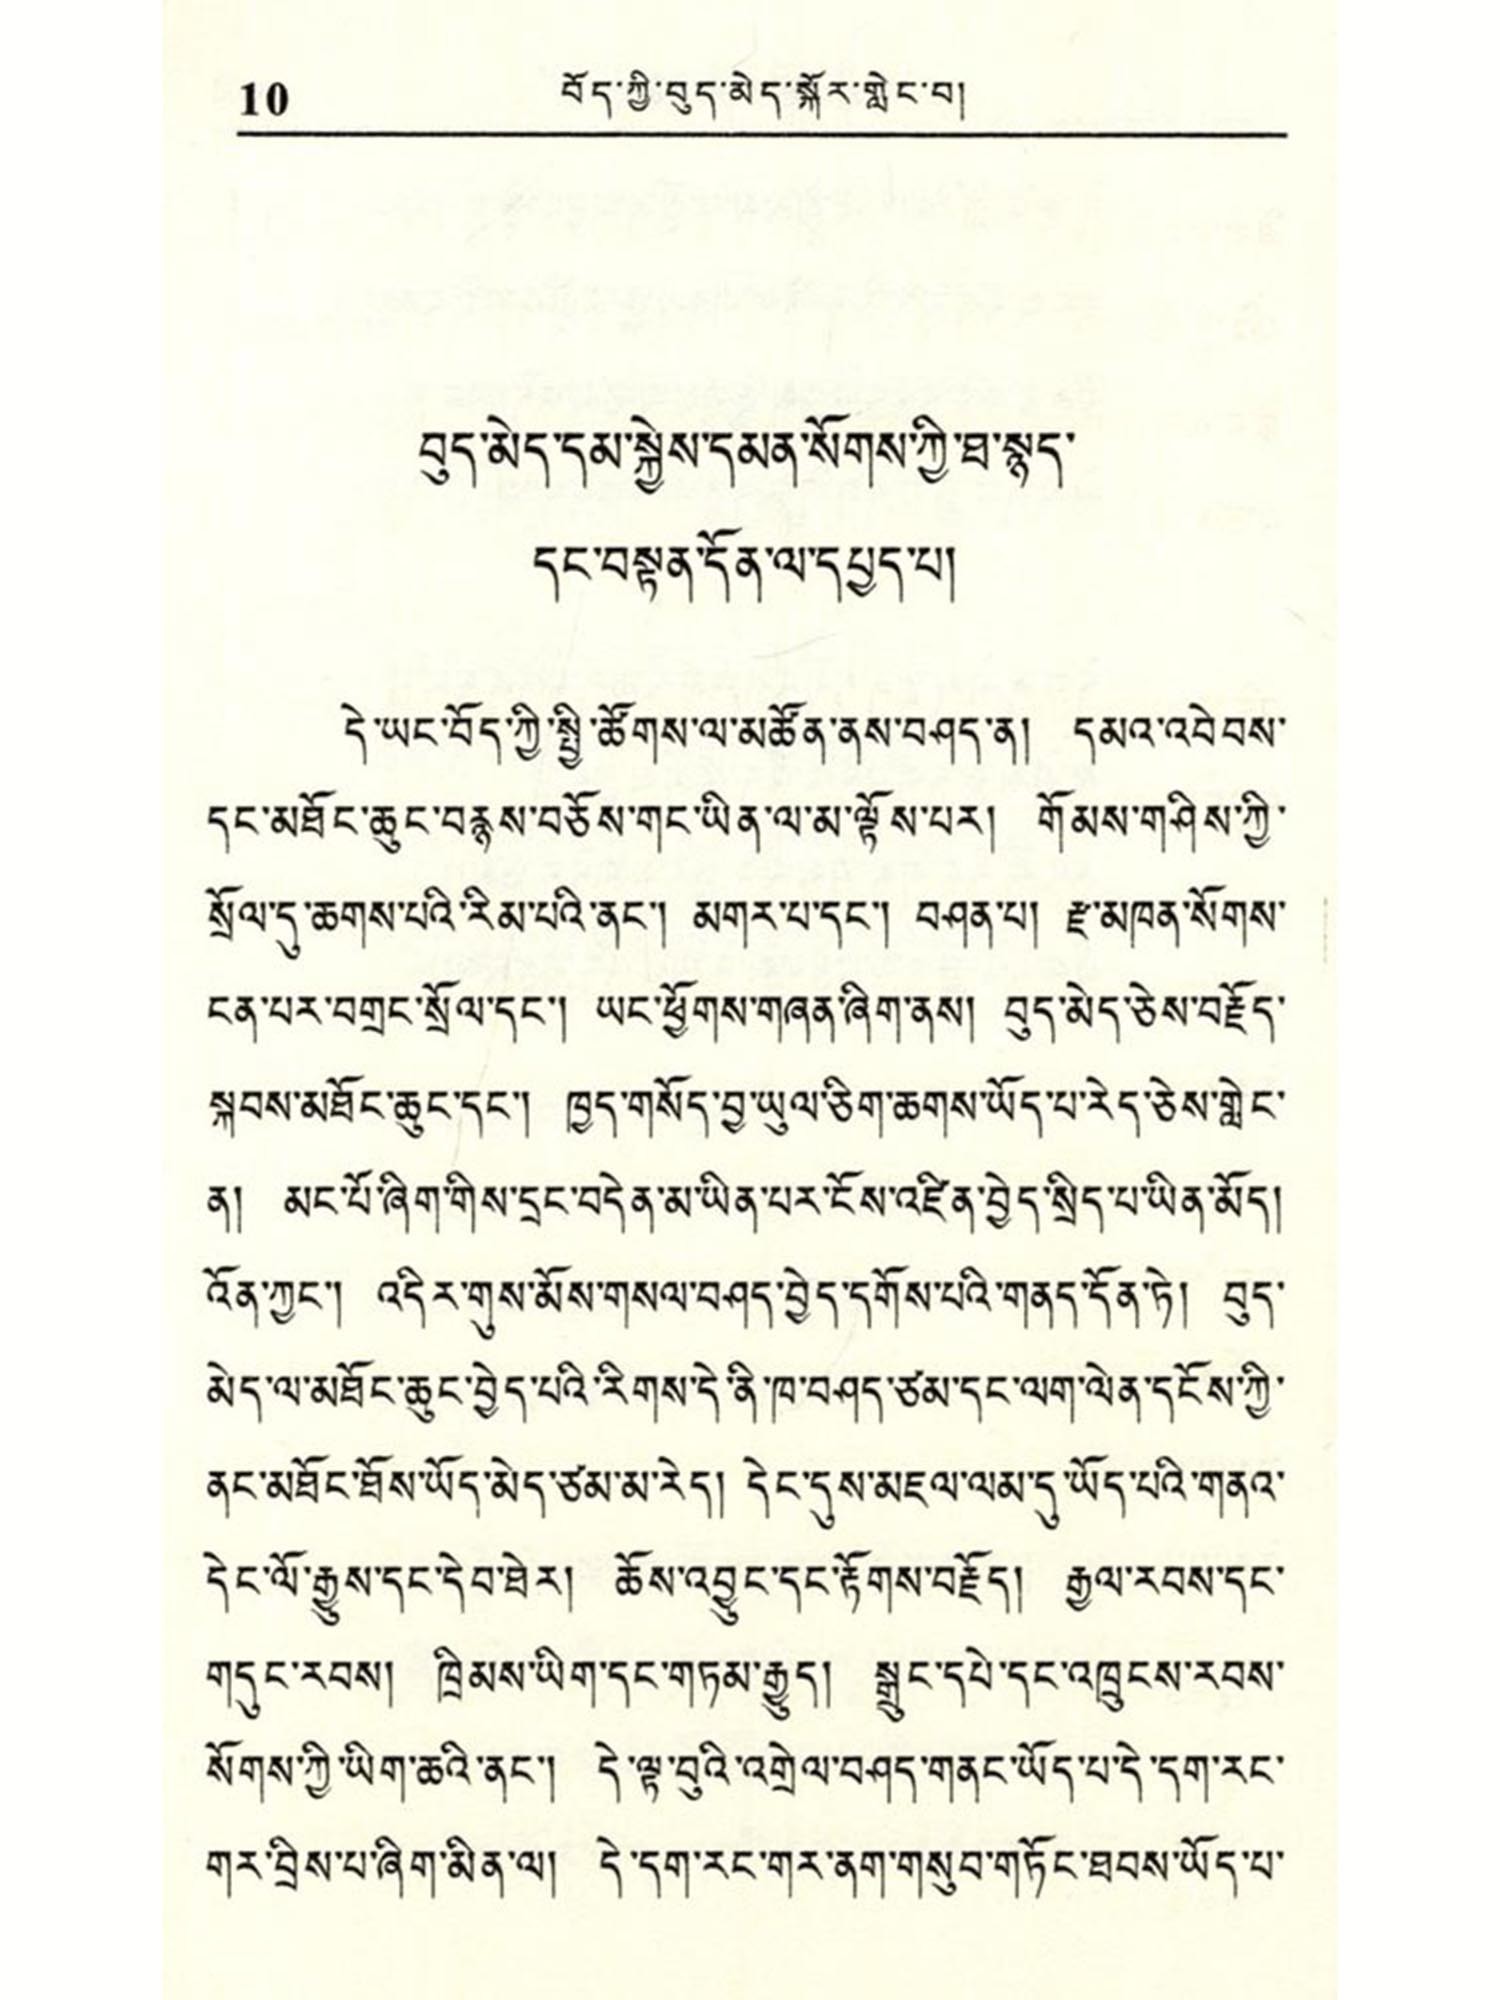 10 བོད་ཀྱི་བུད་མེད་སྐོར་གླེང་བ།
བུད་མེད་དམ་སྐྱེས་དམན་སོགས་ཀྱི་ཐ་སྙད་
དང་བསྟན་དོན་ལ་དཔྱད་པ།
དེ་ཡང་བོད་ཀྱི་སྤྱི་ཚོགས་ལ་མཚོན་ནས་བཤད་ན། དམའ་འབེབས་
དང་མཐོང་ཆུང་བརྙས་བཅོས་གང་ཡིན་ལ་མ་ལྟོས་པར། གོམས་གཤིས་ཀྱི་
སྲོལ་དུ་ཆགས་པའི་རིམ་པའི་ནང་། མགར་པ་དང་། བཤན་པ། རྫ་མཁན་སོགས་
ངན་པར་བགྲང་སྲོལ་དང་། ཡང་ཕྱོགས་གཞན་ཞིག་ནས། བུད་མེད་ཅེས་བརྗོད་
སྐབས་མཐོང་ཆུང་དང་། ཁྱད་གསོད་བྱ་ཡུལ་ཅིག་ཆགས་ཡོད་པ་རེད་ཅེས་གླེང་
ན། མང་པོ་ཞིག་གིས་དྲང་བདེན་མ་ཡིན་པར་ངོས་འཛིན་བྱེད་སྲིད་པ་ཡིན་མོད།
འོན་ཀྱང་། འདིར་གུས་མོས་གསལ་བཤད་བྱེད་དགོས་པའི་གནད་དོན་ཏེ། བུད་
མེད་ལ་མཐོང་ཆུང་བྱེད་པའི་རིགས་དེ་ནི་ཁ་བཤད་ཙམ་དང་ལག་ལེན་དངོས་ཀྱི་
ནང་མཐོང་ཐོས་ཡོད་མེད་ཙམ་མ་རེད། དེང་དུས་མཇལ་ལམ་དུ་ཡོད་པའི་གནའ་
དེང་ལོ་རྒྱུས་དང་དེབ་ཐེར། ཆོས་འབྱུང་དང་རྟོགས་བརྗོད། རྒྱལ་རབས་དང་
གདུང་རབས། ཁྲིམས་ཡིག་དང་གཏམ་རྒྱུད། སྒྲུང་དཔེ་དང་འཁྲུངས་རབས་
སོགས་ཀྱི་ཡིག་ཆའི་ནང་། དེ་ལྟ་བུའི་འགྲེལ་བཤད་གནང་ཡོད་པ་དེ་དག་རང་
གར་བྲིས་པ་ཞིག་མིན་ལ། དེ་དག་རང་གར་ནག་གསུབ་གཏོང་ཐབས་ཡོད་པ་